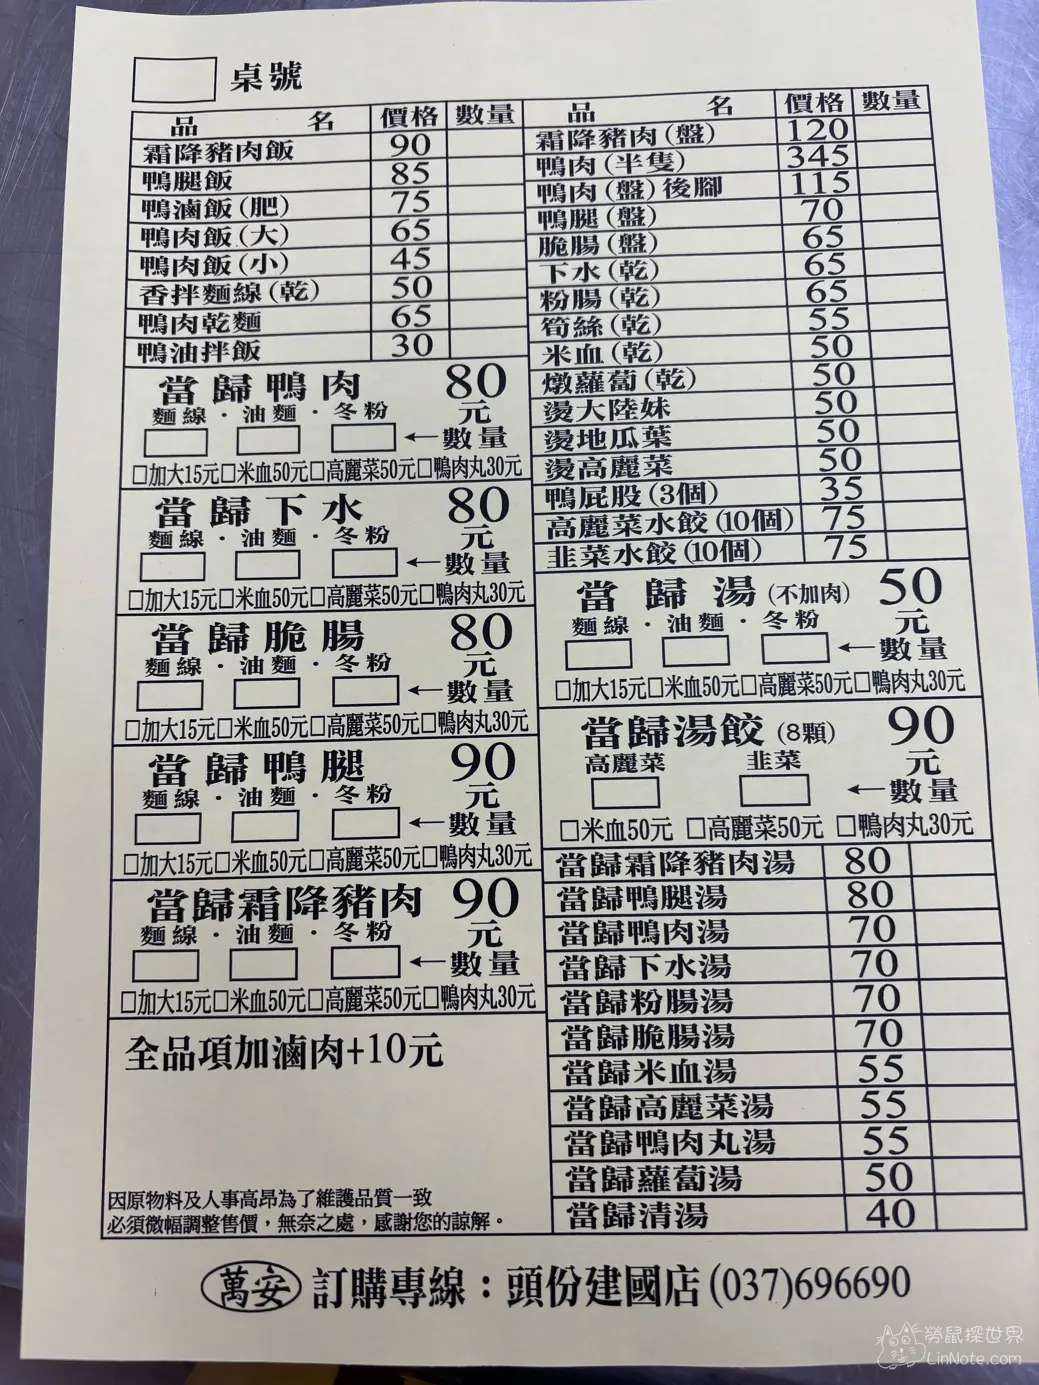 桌號
品名 價格 數量
霜降豬肉飯 90
鴨腿飯 85
鴨滷飯(肥) 75
鴨肉飯(大) 65
鴨肉飯(小) 45
香拌麵線(乾) 50
鴨肉乾麵 65
鴨油拌飯 30
當歸鴨肉 80元
麵線・油麵・冬粉
←數量
□加大15元□米血50元□高麗菜50元□鴨肉丸30元
當歸下水 80元
麵線・油麵・冬粉
←數量
□加大15元□米血50元□高麗菜50元□鴨肉丸30元
當歸脆腸 80元
麵線・油麵・冬粉
←數量
□加大15元□米血50元□高麗菜50元□鴨肉丸30元
當歸鴨腿 90元
麵線・油麵・冬粉
←數量
□加大15元□米血50元□高麗菜50元□鴨肉丸30元
當歸霜降豬肉 90元
麵線・油麵・冬粉
←數量
□加大15元□米血50元□高麗菜50元□鴨肉丸30元
全品項加滷肉+10元
因原物料及人事高昂為了維護品質一致
必須微幅調整售價，無奈之處，感謝您的諒解。
品名 價格 數量
霜降豬肉(盤) 120
鴨肉(半隻) 345
鴨肉(盤)後腳 115
鴨腿(盤) 70
脆腸(盤) 65
下水(乾) 65
粉腸(乾) 65
筍絲(乾) 55
米血(乾) 50
燉蘿蔔(乾) 50
燙大陸妹 50
燙地瓜葉 50
燙高麗菜 50
鴨屁股(3個) 35
高麗菜水餃(10個) 75
韭菜水餃(10個) 75
當歸湯(不加肉) 50元
麵線・油麵・冬粉
←數量
□加大15元□米血50元□高麗菜50元□鴨肉丸30元
當歸湯餃(8顆) 90元
高麗菜 韭菜
←數量
□米血50元 □高麗菜50元 □鴨肉丸30元
當歸霜降豬肉湯 80
當歸鴨腿湯 80
當歸鴨肉湯 70
當歸下水湯 70
當歸粉腸湯 70
當歸脆腸湯 70
當歸米血湯 55
當歸高麗菜湯 55
當歸鴨肉丸湯 55
當歸蘿蔔湯 50
當歸清湯 40
萬安 訂購專線：頭份建國店(037)696690
勞鼠探世界
LinNote.com